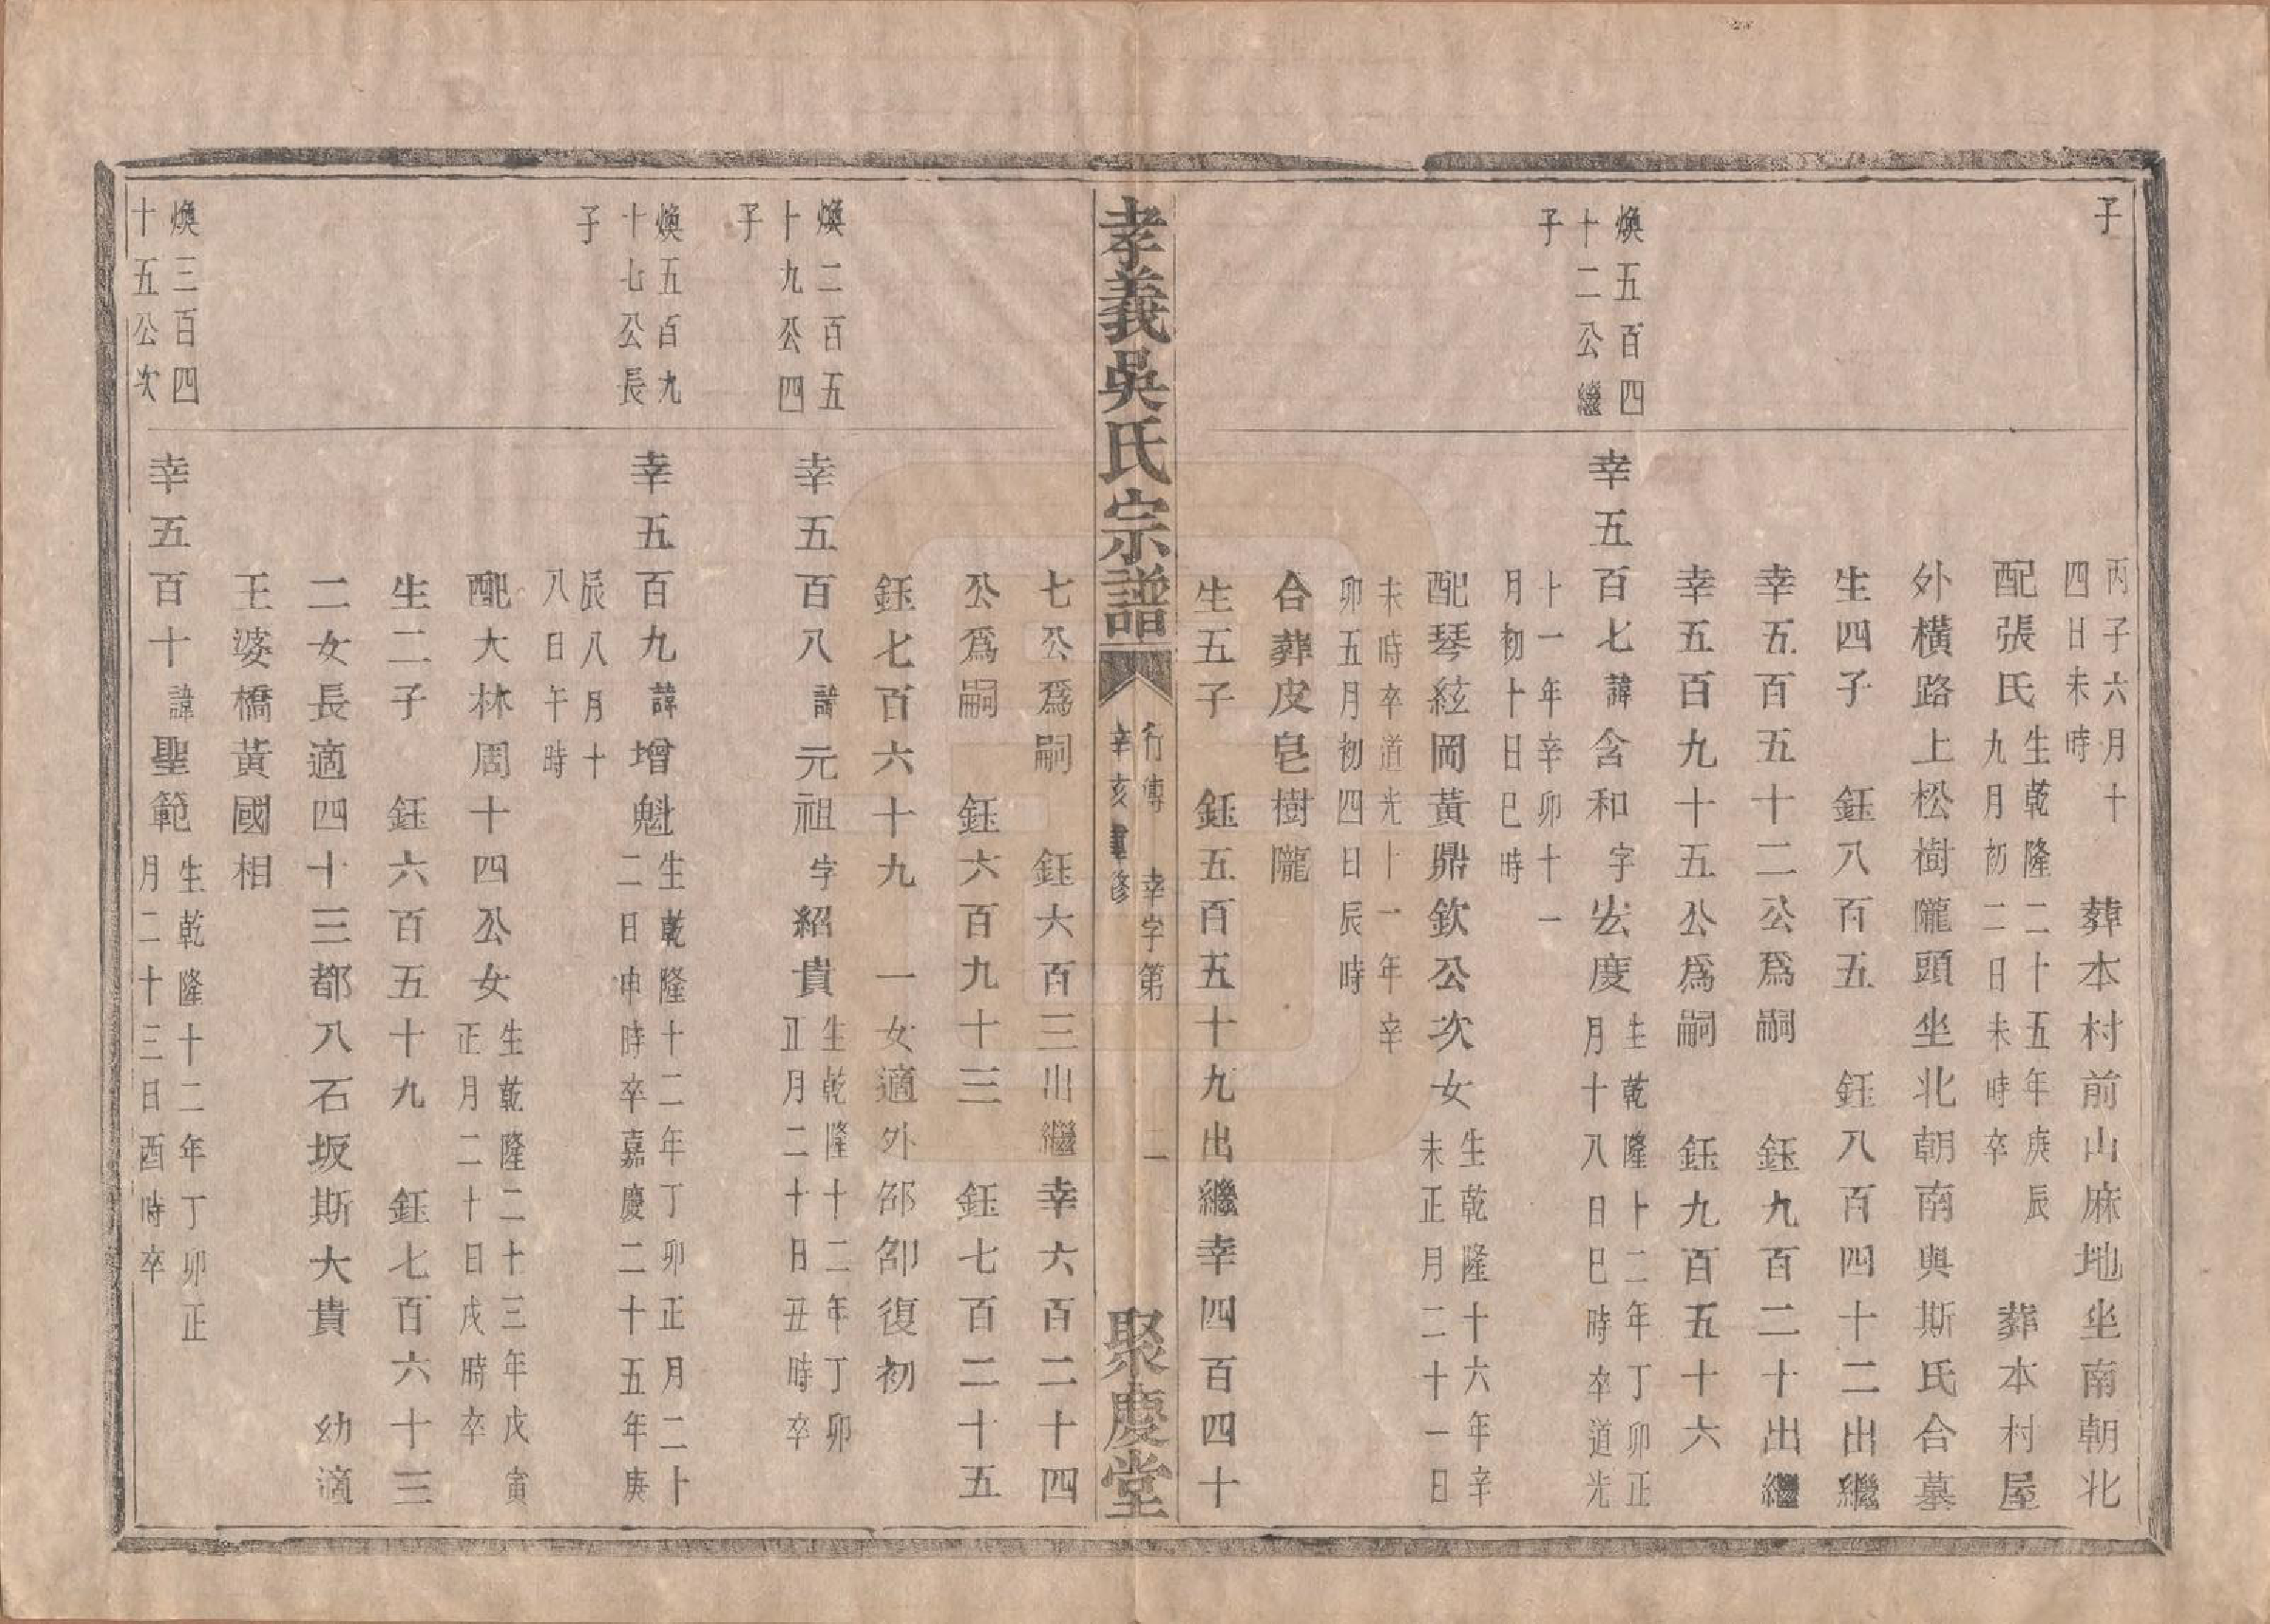 子
丙子六月十
四日未時
葬本村前山麻地坐南朝北
配張氏
生乾隆二十五年庚辰
九月初二日未時卒
葬本村屋
外橫路上松樹隴頭坐北朝南與斯氏合墓
生四子　鈺八百五　鈺八百四十二出繼
幸五百五十二公爲嗣　鈺九百二十出繼
幸五百九十五公爲嗣　鈺九百五十六
煥五百四
十二公繼
子
幸五百七諱含和字宏度
生乾隆十二年丁卯正
月十八日巳時卒道光
十一年辛卯十一
月初十日巳時
配琴絃岡黃鼎欽公次女
生乾隆十六年辛
未正月二十一日
未時卒道光十一年辛
卯五月初四日辰時
合葬皮皂樹隴
生五子　鈺五百五十九出繼幸四百四十
孝義吳氏宗譜
行傳　幸字第
辛亥重修
二
聚慶堂
七公爲嗣　鈺六百三出繼幸六百二十四
公爲嗣　鈺六百九十三　鈺七百二十五
鈺七百六十九　一女適外邰郃復初
煥二百五
十九公四
子
幸五百八諱元祖字紹貴
生乾隆十二年丁卯
正月二十日丑時卒
煥五百九
十七公長
子
幸五百九諱增魁
生乾隆十二年丁卯正月二十
二日申時卒嘉慶二十五年庚
辰八月十
八日午時
配大林周十四公女
生乾隆二十三年戊寅
正月二十日戌時卒
生二子　鈺六百五十九　鈺七百六十三
二女長適四十三都八石坂斯大貴　幼適
王婆橋黃國相
煥三百四
十五公次
幸五百十諱聖範
生乾隆十二年丁卯正
月二十三日酉時卒